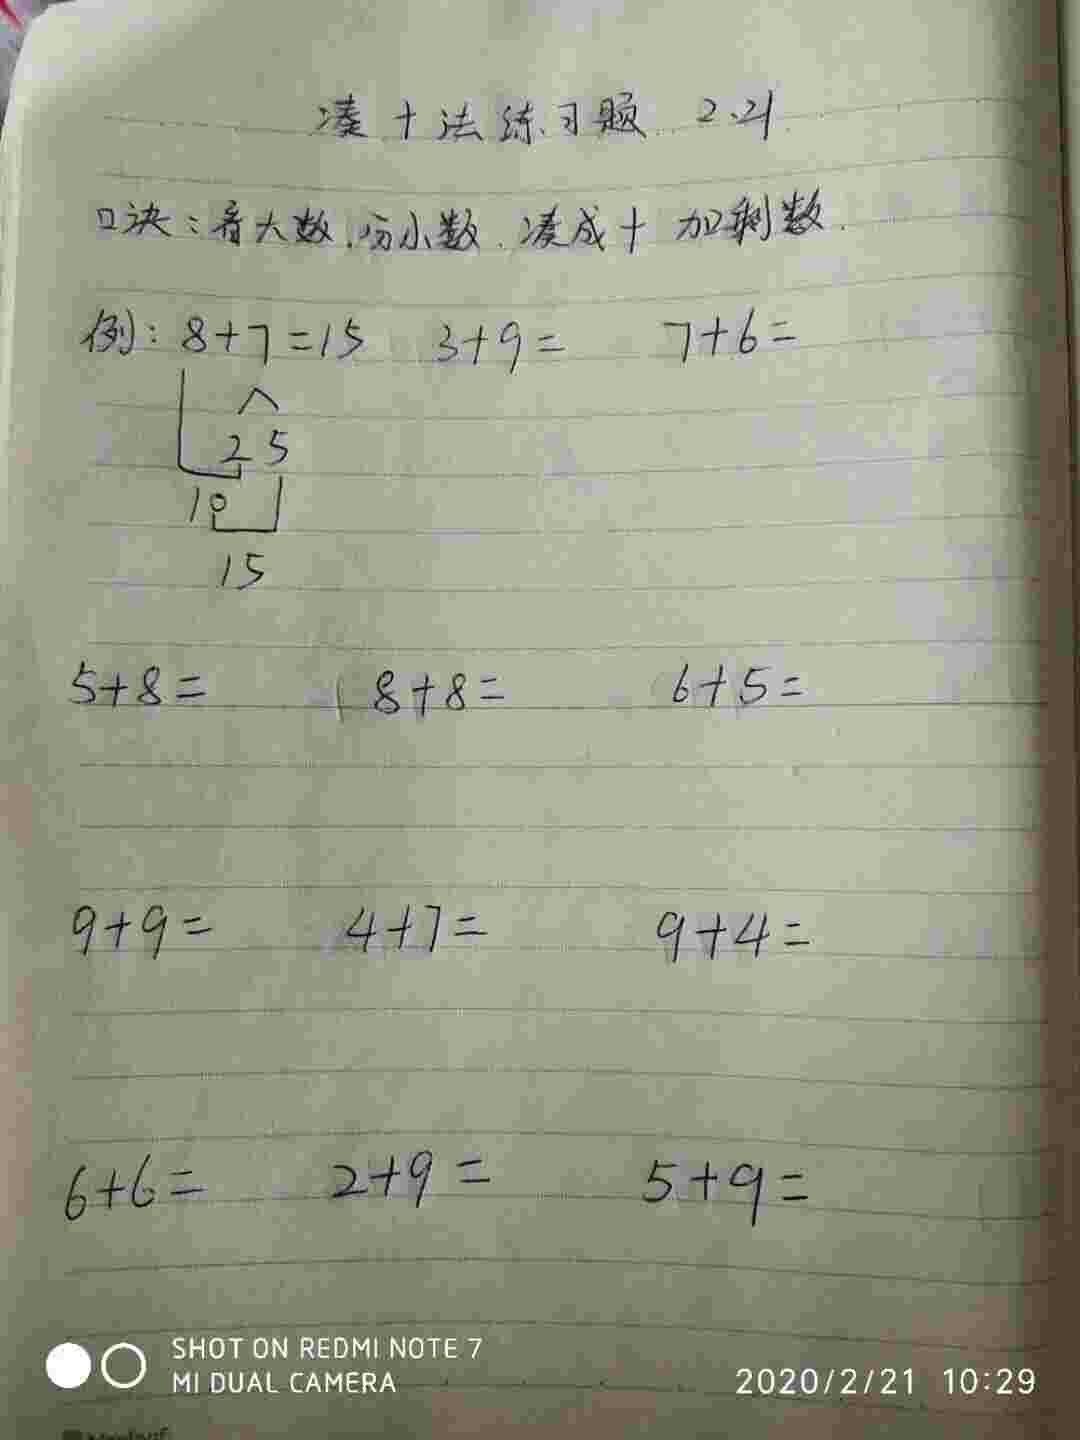 凑十法练习题 2.21
口诀:看大数,分小数,凑成十 加剩数.
例: 8+7=15 3+9= 7+6=
2 5
10
15
5+8= 8+8= 6+5=
9+9= 4+7= 9+4=
6+6= 2+9= 5+9=
SHOT ON REDMI NOTE 7
MI DUAL CAMERA
2020/2/21 10:29